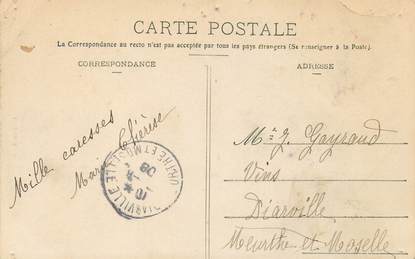 CARTE POSTALE
La Correspondance au recto n'est pas acceptée par tous les pays étrangers (Se renseigner à la Poste).
CORRESPONDANCE
ADRESSE
Mille caresses
Marie
Mr J. Gayraud
Vins
Diarville
Meurthe et Moselle
DIARVILLE
MEURTHE ET MOSELLE
10
09